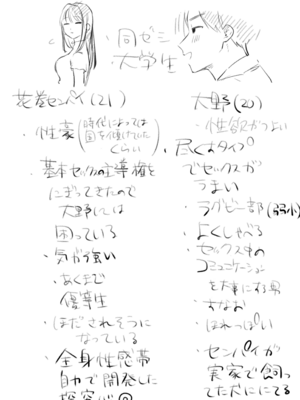 ・同ゼミ
大学生
花巻センパイ(21)
・性豪(時代によっては
国を傾けていた
くらい)
・基本セックスの主導権を
にぎってきたので
大野には
困っている
・気が強い
・あくまで
優等生
・ほだされそうに
なっている
・全身性感帯
自力で開発した
探究心
大野(20)
・性欲がつよい
・尽くすタイプ
でセックスが
うまい
・ラグビー部(弱小)
・よくしゃべる
・セックス中の
コミュニケーション
を大事にする男
・すなお
・ほれっぽい
・センパイが
実家で飼っ
てた犬ににてる